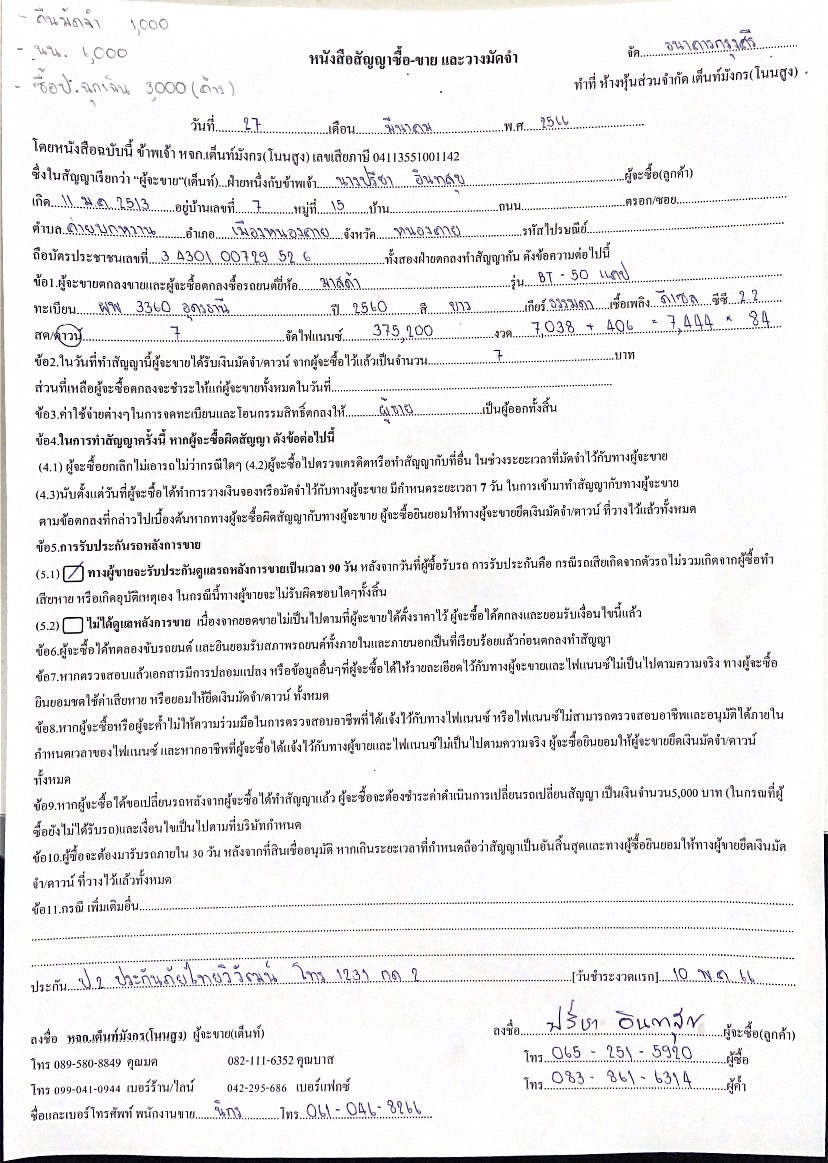 - คืนมัดจำ 1,000
- นน. 1,000
- ซื้อป.ฉุกเฉิน 3,000 (ค้าง)
หนังสือสัญญาซื้อ-ขาย และวางมัดจำ
จัด...ธนาคารกรุงศรี
ทำที่ ห้างหุ้นส่วนจำกัด เต็นท์มังกร(โนนสูง)
วันที่...27...เดือน...มีนาคม...พ.ศ...2566
โดยหนังสือฉบับนี้ ข้าพเจ้า หจก.เต็นท์มังกร(โนนสูง) เลขเสียภาษี 04113551001142
ซึ่งในสัญญาเรียกว่า "ผู้จะขาย"(เต็นท์)...ฝ่ายหนึ่งกับข้าพเจ้า...นางปรีชา อินทสุข...ผู้จะซื้อ(ลูกค้า)
เกิด...11 ม.ค 2513...อยู่บ้านเลขที่...7...หมู่ที่...15...บ้าน...ถนน...ตรอก/ซอย...
ตำบล..ค่ายบกหวาน...อำเภอ...เมืองหนองคาย...จังหวัด...หนองคาย...รหัสไปรษณีย์...
ถือบัตรประชาชนเลขที่...3 4301 00729 52 6...ทั้งสองฝ่ายตกลงทำสัญญากัน ดังข้อความต่อไปนี้
ข้อ1.ผู้จะขายตกลงขายและผู้จะซื้อตกลงซื้อรถยนต์ยี่ห้อ...มาสด้า...รุ่น...BT-50 แคป
ทะเบียน...ผพ 3360 อุดรธานี...ปี 2560 สี ขาว...เกียร์ ธรรมดา เชื้อเพลิง ดีเซล ซีซี 2.2
สด/ดาวน์...7...จัดไฟแนนซ์...375,200...งวด...7,038 + 406 = 7,444 × 84
ข้อ2.ในวันที่ทำสัญญานี้ผู้จะขายได้รับเงินมัดจำ/ดาวน์ จากผู้จะซื้อไว้แล้วเป็นจำนวน...7...บาท
ส่วนที่เหลือผู้จะซื้อตกลงจะชำระให้แก่ผู้จะขายทั้งหมดในวันที่...
ข้อ3.ค่าใช้จ่ายต่างๆในการจดทะเบียนและโอนกรรมสิทธิ์ตกลงให้...ผู้ขาย...เป็นผู้ออกทั้งสิ้น
ข้อ4.ในการทำสัญญาครั้งนี้ หากผู้จะซื้อผิดสัญญา ดังข้อต่อไปนี้
(4.1) ผู้จะซื้อยกเลิกไม่เอารถไม่ว่ากรณีใดๆ (4.2)ผู้จะซื้อไปตรวจเครดิตหรือทำสัญญากับที่อื่น ในช่วงระยะเวลาที่มัดจำไว้กับทางผู้จะขาย
(4.3)นับตั้งแต่วันที่ผู้จะซื้อได้ทำการวางเงินจองหรือมัดจำไว้กับทางผู้จะขาย มีกำหนดระยะเวลา 7 วัน ในการเข้ามาทำสัญญากับทางผู้จะขาย
ตามข้อตกลงที่กล่าวไปเบื้องต้นหากทางผู้จะซื้อผิดสัญญากับทางผู้จะขาย ผู้จะซื้อยินยอมให้ทางผู้จะขายยึดเงินมัดจำ/ดาวน์ ที่วางไว้แล้วทั้งหมด
ข้อ5.การรับประกันรถหลังการขาย
(5.1) ☑ ทางผู้ขายจะรับประกันดูแลรถหลังการขายเป็นเวลา 90 วัน หลังจากวันที่ผู้ซื้อรับรถ การรับประกันคือ กรณีรถเสียเกิดจากตัวรถไม่รวมเกิดจากผู้ซื้อทำ
เสียหาย หรือเกิดอุบัติเหตุเอง ในกรณีนี้ทางผู้ขายจะไม่รับผิดชอบใดๆทั้งสิ้น
(5.2) ☐ ไม่ได้ดูแลหลังการขาย เนื่องจากยอดขายไม่เป็นไปตามที่ผู้จะขายได้ตั้งราคาไว้ ผู้จะซื้อได้ตกลงและยอมรับเงื่อนไขนี้แล้ว
ข้อ6.ผู้จะซื้อได้ทดลองขับรถยนต์ และยินยอมรับสภาพรถยนต์ทั้งภายในและภายนอกเป็นที่เรียบร้อยแล้วก่อนตกลงทำสัญญา
ข้อ7.หากตรวจสอบแล้วเอกสารมีการปลอมแปลง หรือข้อมูลอื่นๆที่ผู้จะซื้อได้ให้รายละเอียดไว้กับทางผู้จะขายและไฟแนนซ์ไม่เป็นไปตามความจริง ทางผู้จะซื้อ
ยินยอมชดใช้ค่าเสียหาย หรือยอมให้ยึดเงินมัดจำ/ดาวน์ ทั้งหมด
ข้อ8.หากผู้จะซื้อหรือผู้จะค้ำไม่ให้ความร่วมมือในการตรวจสอบอาชีพที่ได้แจ้งไว้กับทางไฟแนนซ์ หรือไฟแนนซ์ไม่สามารถตรวจสอบอาชีพและอนุมัติได้ภายใน
กำหนดเวลาของไฟแนนซ์ และหากอาชีพที่ผู้จะซื้อได้แจ้งไว้กับทางผู้จะขายและไฟแนนซ์ไม่เป็นไปตามความจริง ผู้จะซื้อยินยอมให้ผู้จะขายยึดเงินมัดจำ/ดาวน์
ทั้งหมด
ข้อ9.หากผู้จะซื้อได้ขอเปลี่ยนรถหลังจากผู้จะซื้อได้ทำสัญญาแล้ว ผู้จะซื้อจะต้องชำระค่าดำเนินการเปลี่ยนรถเปลี่ยนสัญญา เป็นเงินจำนวน5,000 บาท (ในกรณที่ผู้
ซื้อยังไม่ได้รับรถ)และเงื่อนไขเป็นไปตามที่บริษัทกำหนด
ข้อ10.ผู้ซื้อจะต้องมารับรถภายใน 30 วัน หลังจากที่สินเชื่ออนุมัติ หากเกินระยะเวลาที่กำหนดถือว่าสัญญาเป็นอันสิ้นสุดและทางผู้ซื้อยินยอมให้ทางผู้ขายยึดเงินมัด
จำ/ดาวน์ ที่วางไว้แล้วทั้งหมด
ข้อ11.กรณี เพิ่มเติมอื่น...
ประกัน...ป.2 ประกันภัยไทยวิวัฒน์ โทร 1231 กด 2...[วันชำระงวดแรก] 10 พ.ค 66
ลงชื่อ หจก.เต็นท์มังกร(โนนสูง) ผู้จะขาย(เต็นท์)
ลงชื่อ...ปรีชา อินทสุข...ผู้จะซื้อ(ลูกค้า)
โทร 089-580-8849 คุณมด 082-111-6352 คุณบาส
โทร...065-251-5920...ผู้ซื้อ
โทร 099-041-0944 เบอร์ร้าน/ไลน์ 042-295-686 เบอร์แฟกซ์
โทร...083-861-6314...ผู้ค้ำ
ชื่อและเบอร์โทรศัพท์ พนักงานขาย...นิกร...โทร. 061-046-8266